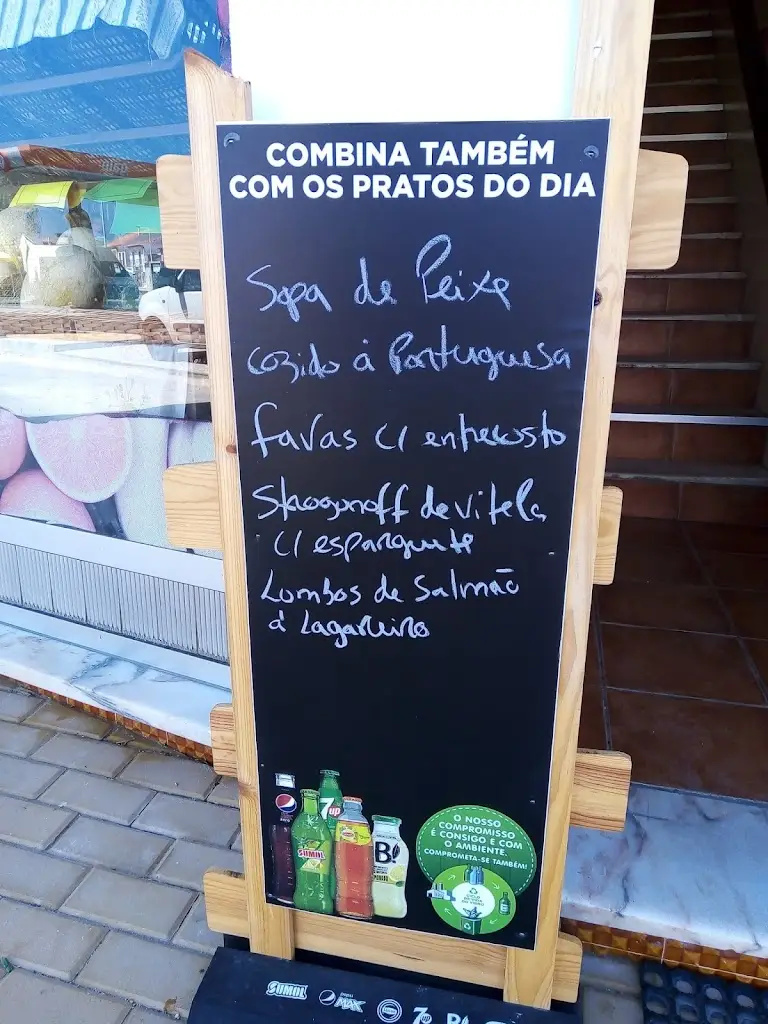 COMBINA TAMBÉM
COM OS PRATOS DO DIA
Sopa de Peixe
Cozido à Portuguesa
favas c/ entrecosto
Strogonoff de vitela
c/ esparguete
Lombos de Salmão
à Lagareiro
7up
SUMOL
B!
O NOSSO
COMPROMISSO
É CONSIGO E COM
O AMBIENTE.
COMPROMETA-SE TAMBÉM!
SUMOL
MAX
7